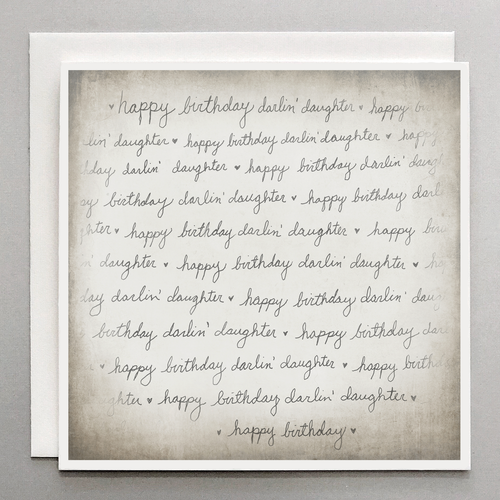 ♥ happy birthday darlin' daughter ♥ happy
lin' daughter ♥ happy birthday darlin' daughter ♥ happy
day darlin' daughter ♥ happy birthday darlin' daug
y birthday darlin' daughter ♥ happy birthday darl
hter ♥ happy birthday darlin' daughter ♥ happy bir
daughter ♥ happy birthday darlin' daughter ♥
day darlin' daughter ♥ happy birthday darlin' dau
birthday darlin' daughter ♥ happy birthday dar
♥ happy birthday darlin' daughter ♥ happy birth
ghter ♥ happy birthday darlin' daughter ♥
♥ happy birthday ♥